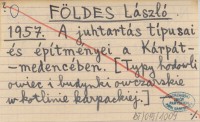 FÖLDES László
1957. A juhtartás típusai
és építményei a Kárpát-
-medencében. [Typy hodowli
owiec i budynki owczarskie
w kotlinie karpackiej.]